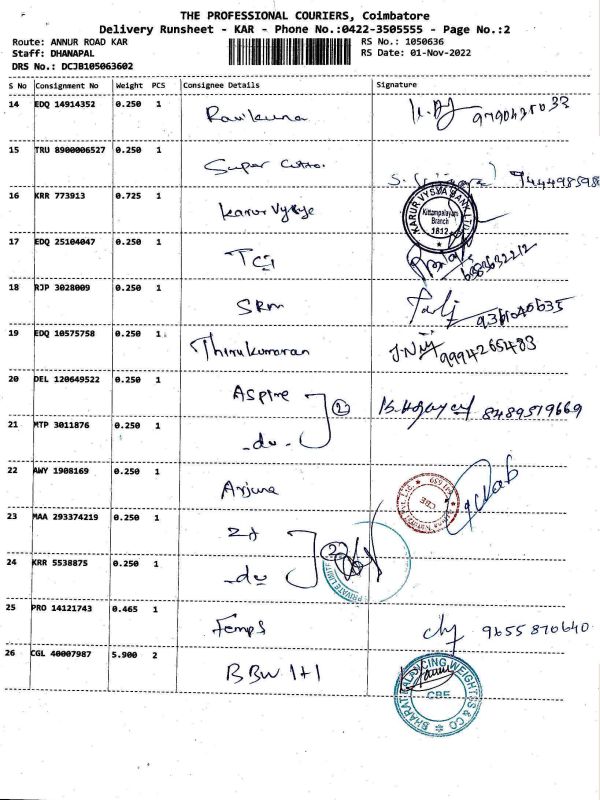 THE PROFESSIONAL COURIERS, Coimbatore
Delivery Runsheet - KAR - Phone No.:0422-3505555 - Page No.:2
Route: ANNUR ROAD KAR
RS No.: 1050636
Staff: DHANAPAL
RS Date: 01-Nov-2022
DRS No.: DCJB105063602
S No Consignment No Weight PCS Consignee Details Signature
14 EDQ 14914352 0.250 1 Ravikuna
15 TRU 8900006527 0.250 1 Super
16 KRR 773913 0.725 1 Karur Vysye
KARUR VYSYA BANK LTD
Kittampalayam
Branch
1812
17 EDQ 25104047 0.250 1 TCI 6383632212
18 RJP 3028009 0.250 1 SRM
19 EDQ 10575758 0.250 1 Thirukumaran 9994265483
20 DEL 120649522 0.250 1 Aspire (2) 8489579669
21 MTP 3011876 0.250 1 -du-
22 AWY 1908169 0.250 1 Arjuna
CBE
23 MAA 293374219 0.250 1
24 KRR 5538875 0.250 1 -du- (2)
PRIVATE LIMITED
25 PRO 14121743 0.465 1 Femps 9655870640
26 CGL 40007987 5.900 2 BBW 1+1
BHARAT BALANCING WEIGHTSS & CO
CBE